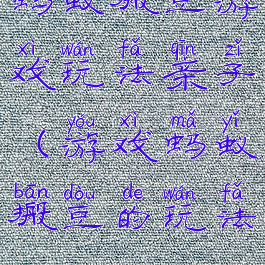 蚂蚁搬豆游
xì wán fǎ qīn zǐ
戏玩法亲子
yóu xì mǎ yǐ
(游戏蚂蚁
bān dòu de wán fǎ
搬豆的玩法